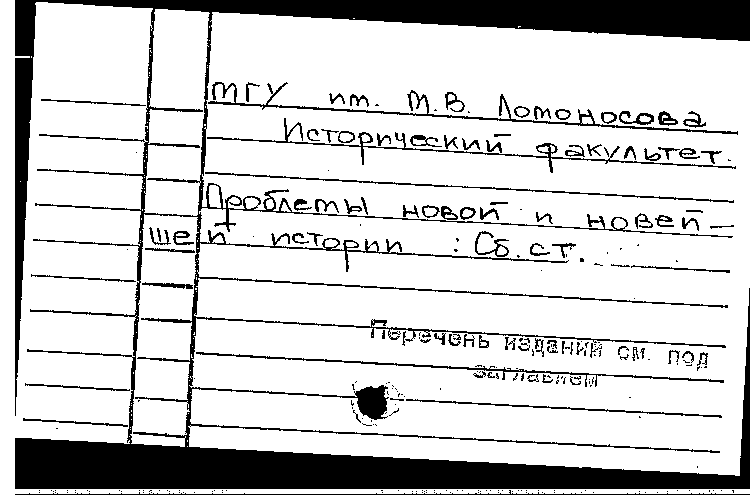 МГУ им. М.В. Ломоносова
Исторический факультет.
Проблемы новой и новей-
шей истории : Сб.ст.
Перечень изданий см. под
заглавием